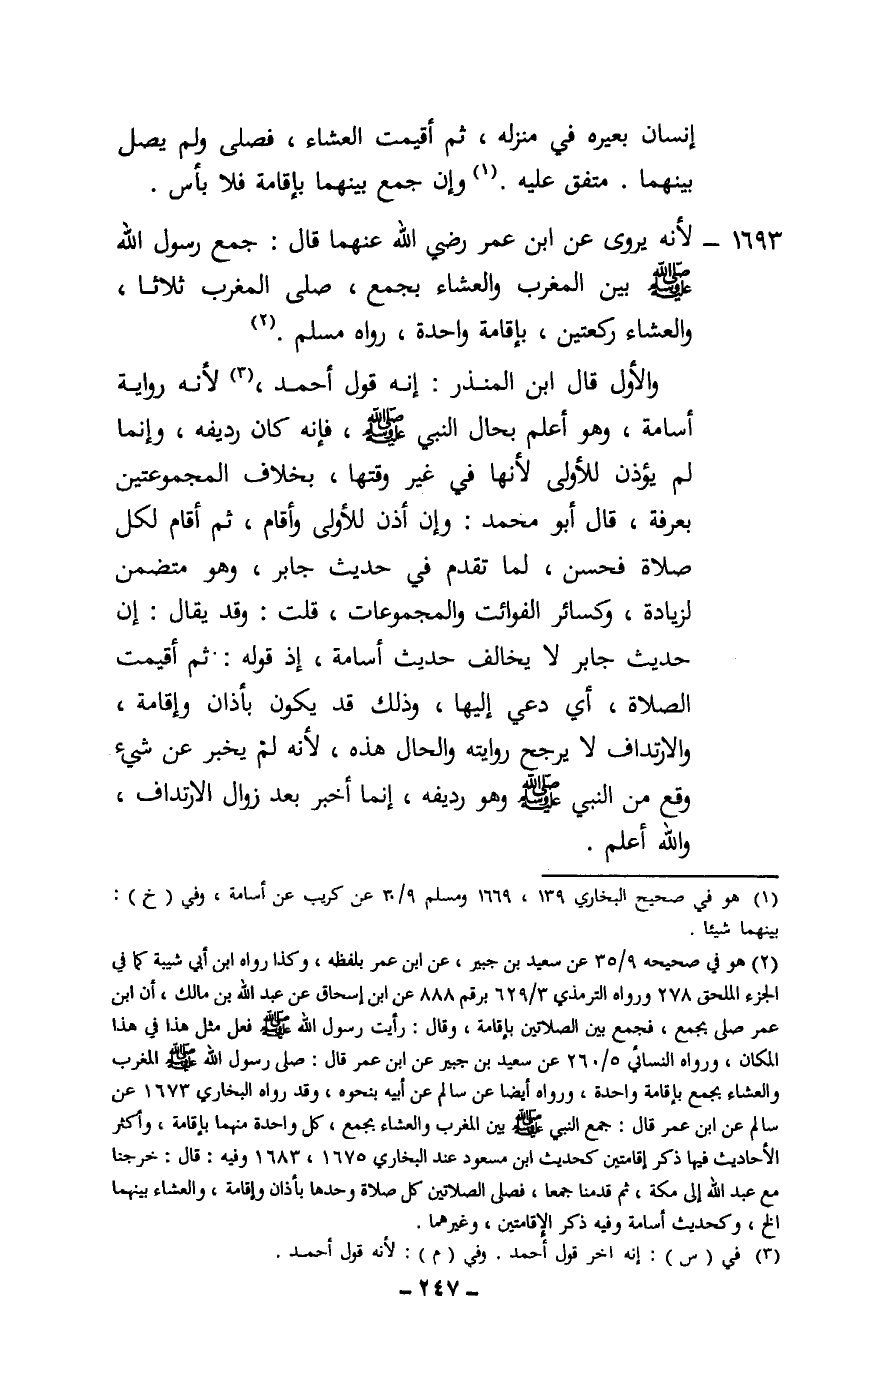 إنسان بعيره في منزله ، ثم أقيمت العشاء ، فصلى ولم يصل
بينهما . متفق عليه .(١) وإن جمع بينهما بإقامة فلا بأس .
١٦٩٣ – لأنه يروى عن ابن عمر رضي الله عنهما قال : جمع رسول الله
ﷺ بين المغرب والعشاء بجمع ، صلى المغرب ثلاثا ،
والعشاء ركعتين ، بإقامة واحدة ، رواه مسلم .(٢)
والأول قال ابن المنذر : إنه قول أحمد ،(٣) لأنه رواية
أسامة ، وهو أعلم بحال النبي ﷺ ، فإنه كان رديفه ، وإنما
لم يؤذن للأولى لأنها في غير وقتها ، بخلاف المجموعتين
بعرفة ، قال أبو محمد : وإن أذن للأولى وأقام ، ثم أقام لكل
صلاة فحسن ، لما تقدم في حديث جابر ، وهو متضمن
لزيادة ، وكسائر الفوائت والمجموعات ، قلت : وقد يقال : إن
حديث جابر لا يخالف حديث أسامة ، إذ قوله : ثم أقيمت
الصلاة ، أي دعي إليها ، وذلك قد يكون بأذان وإقامة ،
والارتداف لا يرجح روايته والحال هذه ، لأنه لمْ يخبر عن شيء
وقع من النبي ﷺ وهو رديفه ، إنما أخبر بعد زوال الارتداف ،
والله أعلم .
(١) هو في صحيح البخاري ١٣٩ ، ١٦٦٩ ومسلم ٣٠/٩ عن كريب عن أسامة ، وفي ( خ ) :
بينهما شيئا .
(٢) هو في صحيحه ٣٥/٩ عن سعيد بن جبير ، عن ابن عمر بلفظه ، وكذا رواه ابن أبي شيبة كما في
الجزء الملحق ٢٧٨ ورواه الترمذي ٦٢٩/٣ برقم ٨٨٨ عن ابن إسحاق عن عبد الله بن مالك ، أن ابن
عمر صلى بجمع ، فجمع بين الصلاتين بإقامة ، وقال : رأيت رسول الله ﷺ فعل مثل هذا في هذا
المكان ، ورواه النسائي ٢٦٠/٥ عن سعيد بن جبير عن ابن عمر قال : صلى رسول الله ﷺ المغرب
والعشاء بجمع بإقامة واحدة ، ورواه أيضا عن سالم عن أبيه بنحوه ، وقد رواه البخاري ١٦٧٣ عن
سالم عن ابن عمر قال : جمع النبي ﷺ بين المغرب والعشاء بجمع ، كل واحدة منهما بإقامة ، وأكثر
الأحاديث فيها ذكر إقامتين كحديث ابن مسعود عند البخاري ١٦٧٥ ، ١٦٨٣ وفيه : قال : خرجنا
مع عبد الله إلى مكة ، ثم قدمنا جمعا ، فصلى الصلاتين كل صلاة وحدها بأذان وإقامة ، والعشاء بينهما
الخ ، وكحديث أسامة وفيه ذكر الإقامتين ، وغيرهما .
(٣) في ( س ) : إنه اخر قول أحمد . وفي ( م ) : لأنه قول أحمد .
– ٢٤٧ –